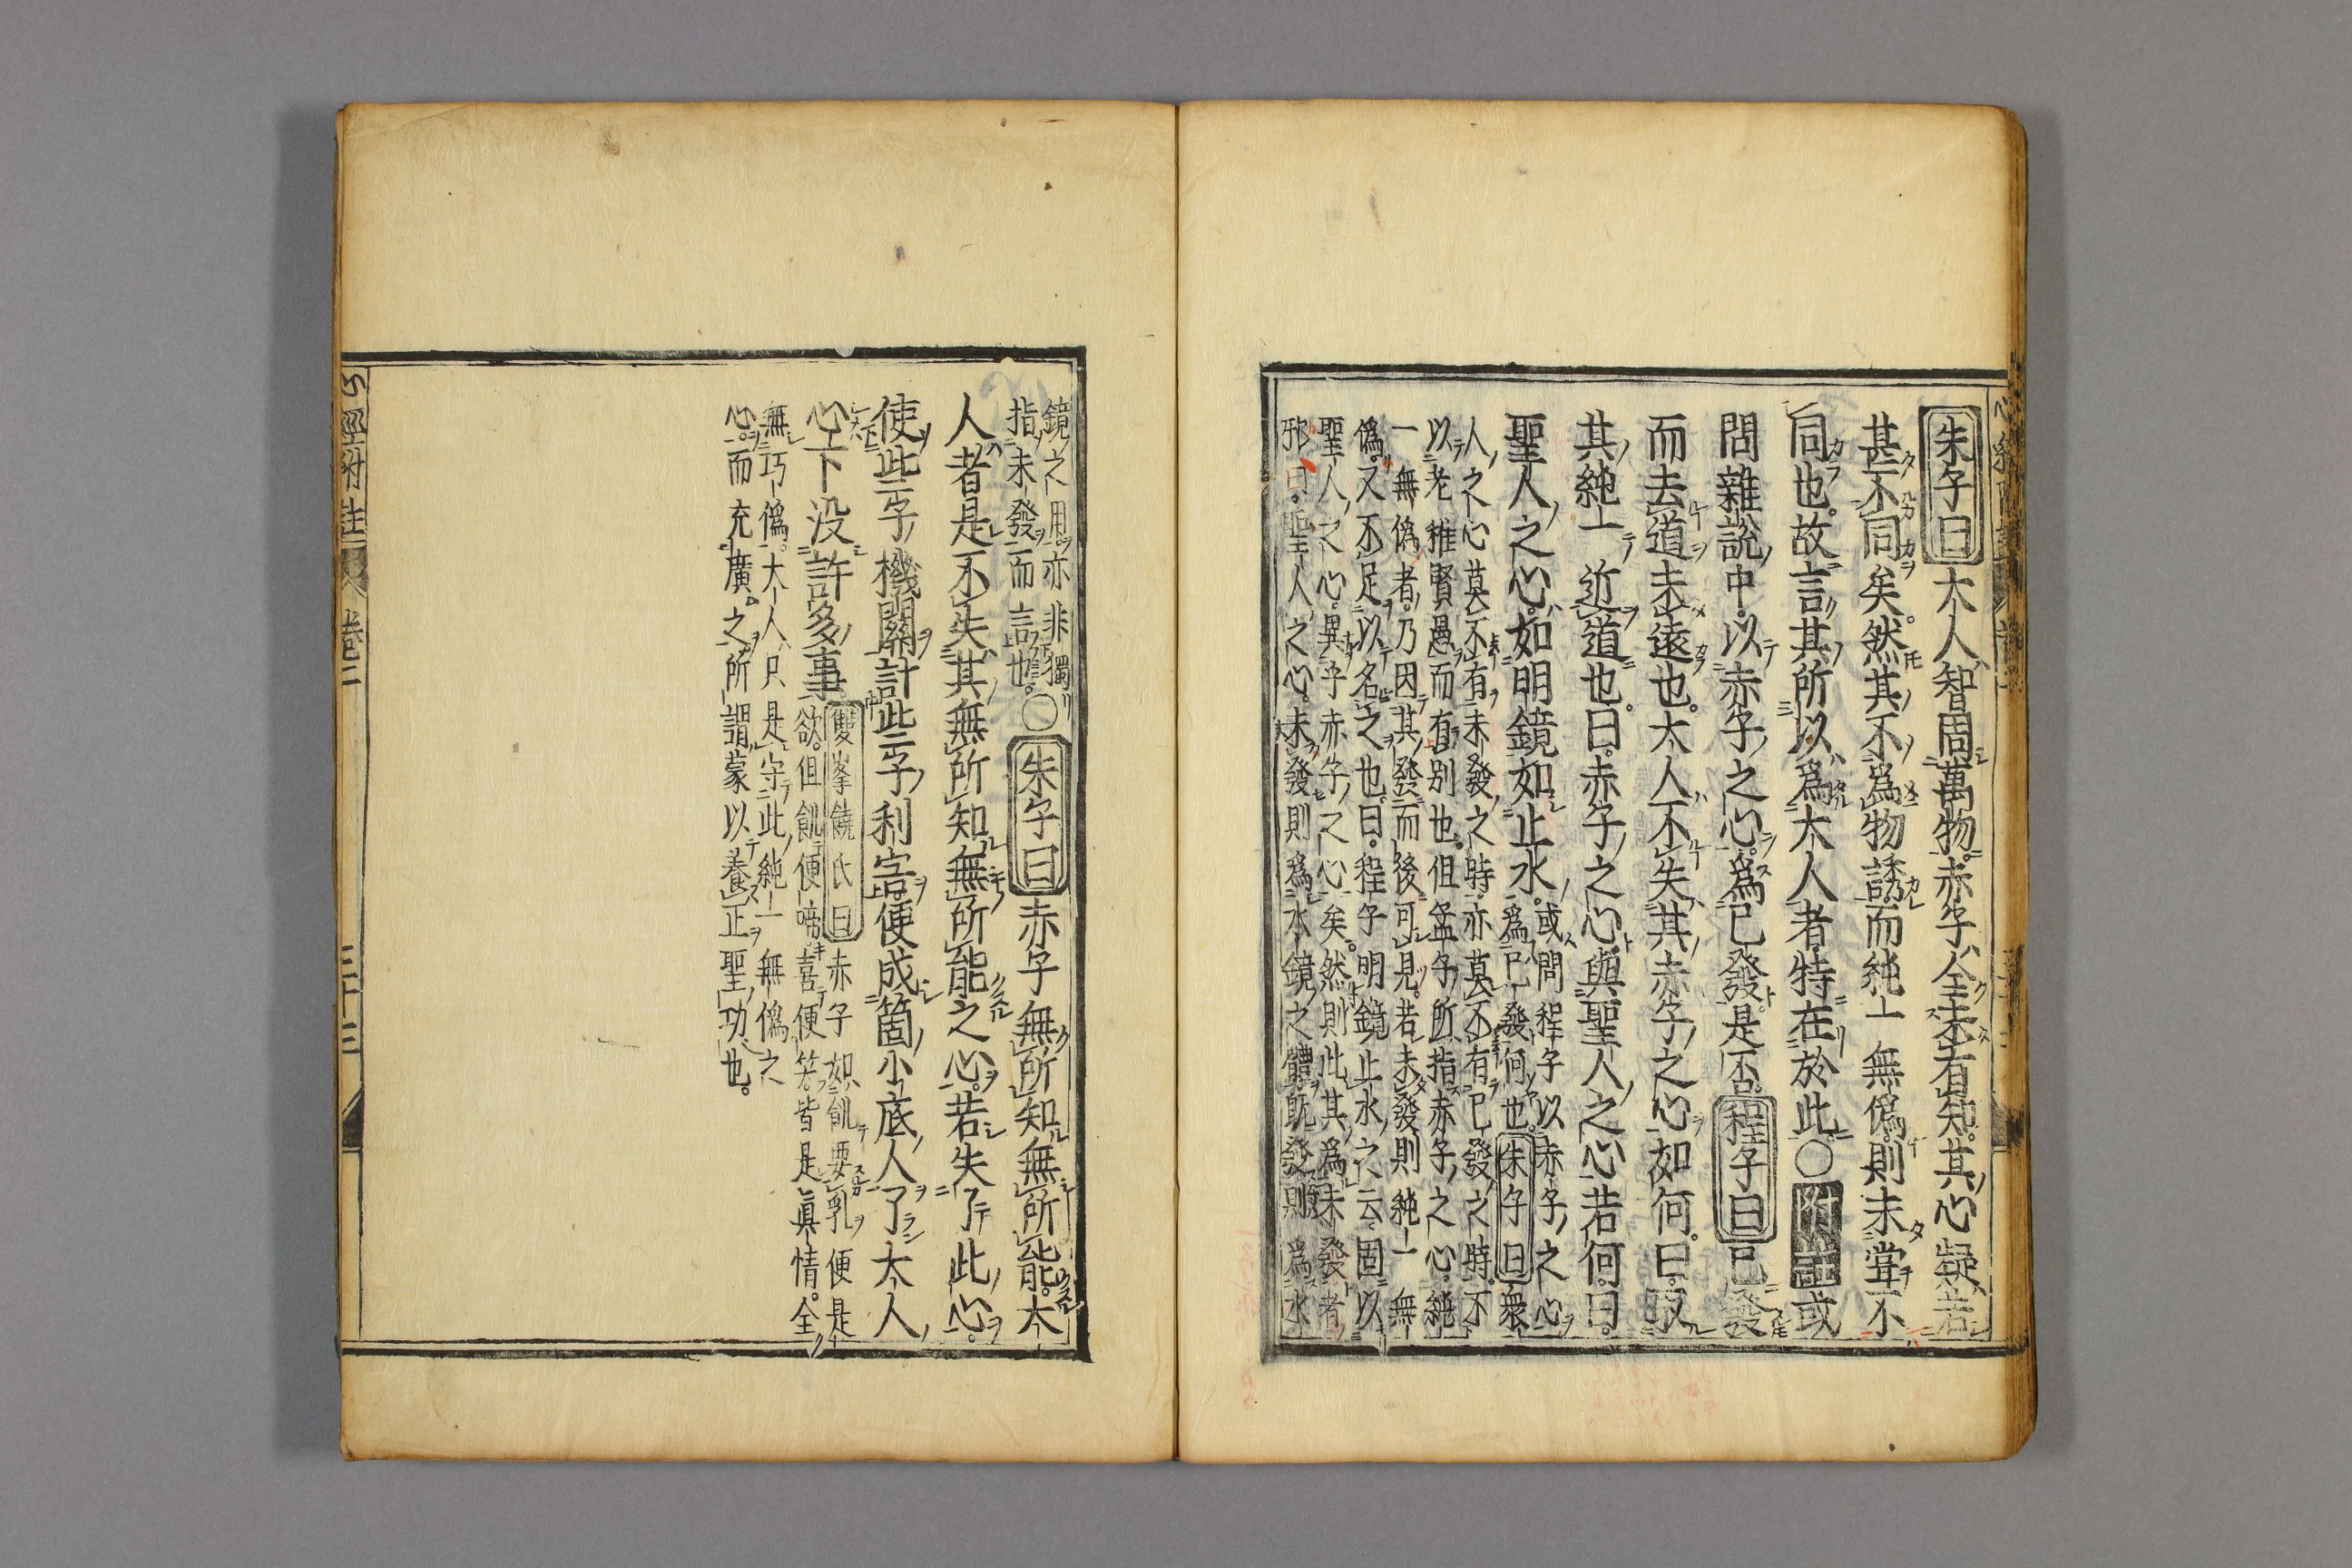 朱子曰大人智周萬物赤子全未有知其心疑若
甚不同矣然其不爲物誘而純一無僞則未嘗不
同也故言其所以爲大人者特在於此〇附註或
問雜說中以赤子之心爲已發是否程子曰已發
而去道未遠也大人不失其赤子之心如何曰取
其純一近道也曰赤子之心與聖人之心若何曰
聖人之心如明鏡如止水
或問程子以赤子之心
爲已發何也朱子曰衆
人之心莫不有未發之時亦莫不有已發之時不
以老稚賢愚而有別也但孟子所指赤子之心純
一無僞者乃因其發而後可見若未發則純一無
僞又不足以名之也曰程子明鏡止水之云固以
聖人之心異乎赤子之心矣然則此其爲未發者
邪曰聖人之心未發則爲水鏡之體旣發則爲水
鏡之用亦非獨
指未發而言也
〇朱子曰赤子無所知無所能大
人者是不失其無所知無所能之心若失了此心
使此子機關計此子利害便成箇小底人了大人
心下没許多事
雙峯饒氏曰赤子如飢要乳便是
欲但飢便啼喜便笑皆是眞情全
無巧僞大人只是守此純一無僞之
心而充廣之所謂蒙以養正聖功也
心經附註 卷二 三十三